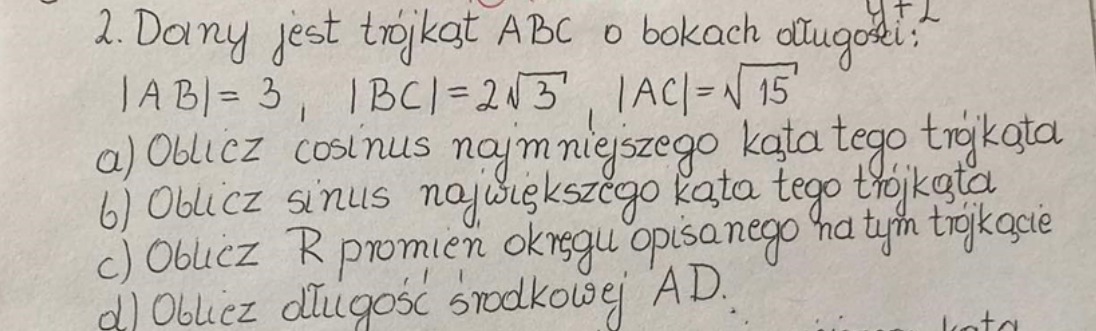 2. Dany jest trójkąt ABC o bokach długości:
|AB| = 3, |BC| = 2√3, |AC| = √15
a) Oblicz cosinus najmniejszego kąta tego trójkąta
b) Oblicz sinus największego kąta tego trójkąta
c) Oblicz R promień okręgu opisanego na tym trójkącie
d) Oblicz długość środkowej AD.
kąta